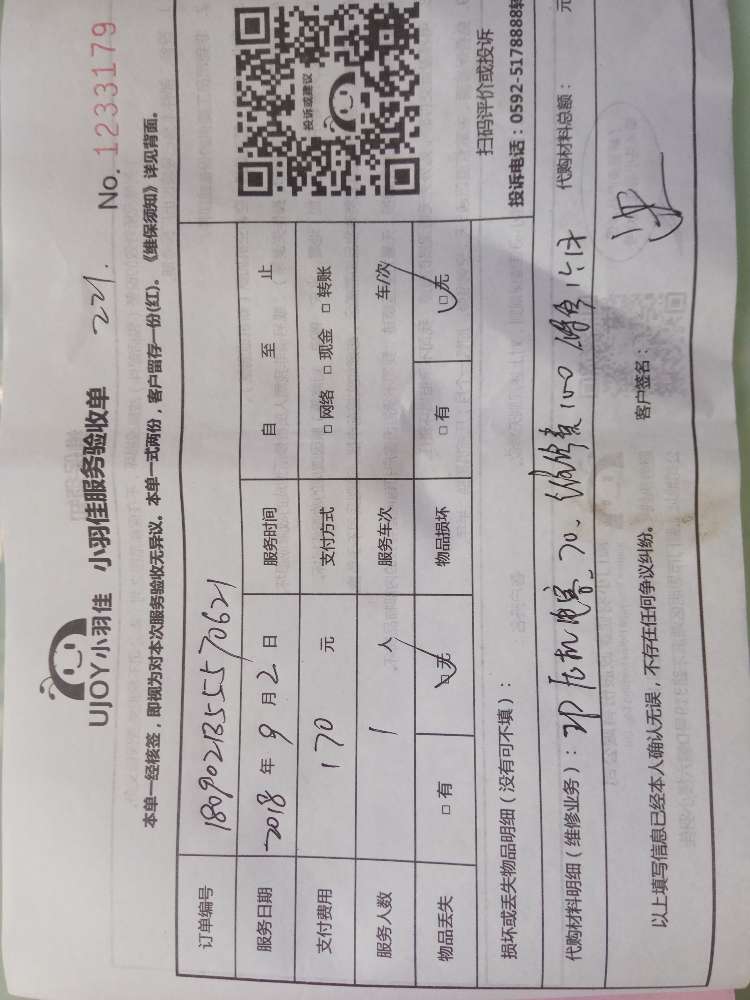 UJOY小羽佳 小羽佳服务验收单 221. No. 1233179
本单一经核签，即视为对本次服务验收无异议。本单一式两份，客户留存一份(红)。《维保须知》详见背面。
订单编号 1809021355570621
服务日期 2018 年 9 月 2 日 服务时间 自 至 止
支付费用 170 元 支付方式 □ 网络 □ 现金 □ 转账
服务人数 1 人 服务车次 车/次
物品丢失 □ 有 □ 无 物品损坏 □ 有 □ 无
投诉或建议
扫码评价或投诉
投诉电话：0592-5178888转
损坏或丢失物品明细（没有可不填）：
代购材料明细（维修业务）：外风机电容_70、维修费100 代购材料总额： 元
以上填写信息已经本人确认无误，不存在任何争议纠纷。 客户签名：